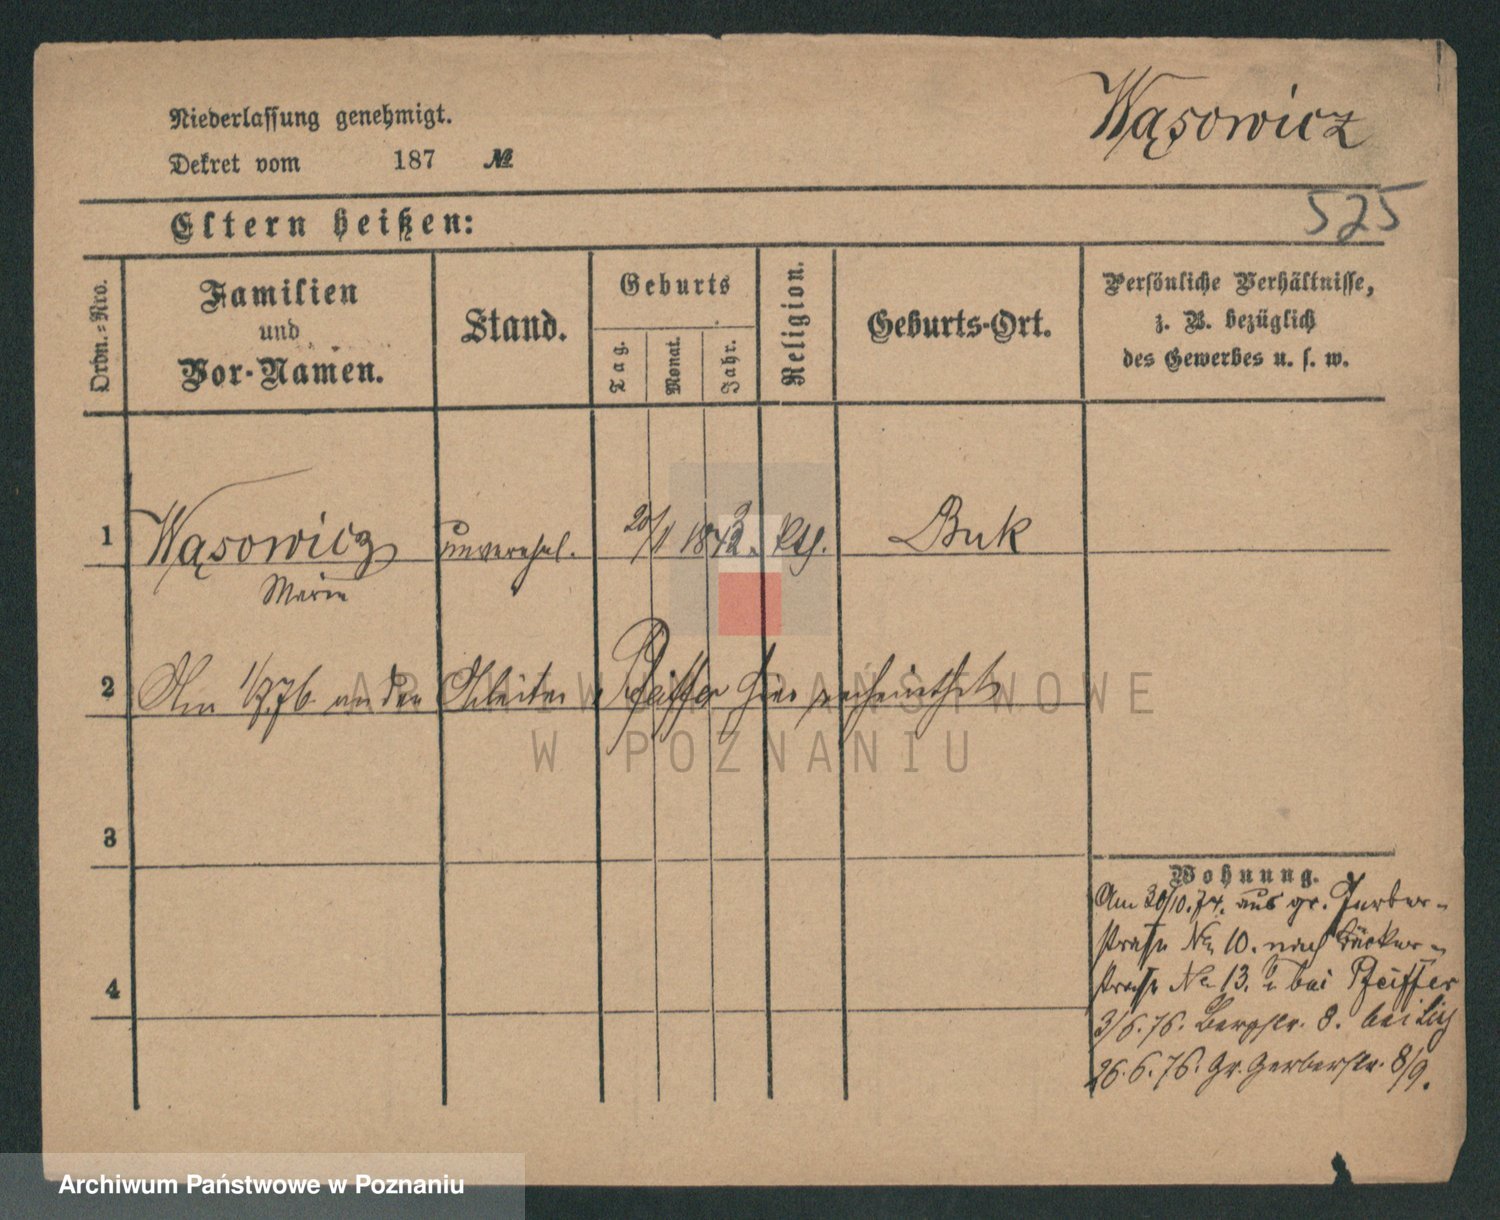 Wąsowicz
Niederlassung genehmigt.
Dekret vom 187 №
525
Eltern heißen:
Ordn.-Nro.
Familien
und
Vor-Namen.
Stand.
Geburts
Tag.
Monat.
Jahr.
Religion.
Geburts-Ort.
Persönliche Verhältnisse,
z. B. bezüglich
des Gewerbes u. s. w.
1 Wąsowicz unverehel. 20/1 1843. kth. Buk
Marie
2 Am 1/7.76 an den Arbeiter Pfeiffer hier verheirathet
ARCHIWUM PAŃSTWOWE
W POZNANIU
3
4
Wohnung.
Am 30/10.74. aus gr. Gerber-
straße No 10. nach Bäcker-
straße No 13. bei Pfeiffer
3/6.76. Bergstr. 8. bei
26.6.76. Gr. Gerberstr. 8/9.
Archiwum Państwowe w Poznaniu